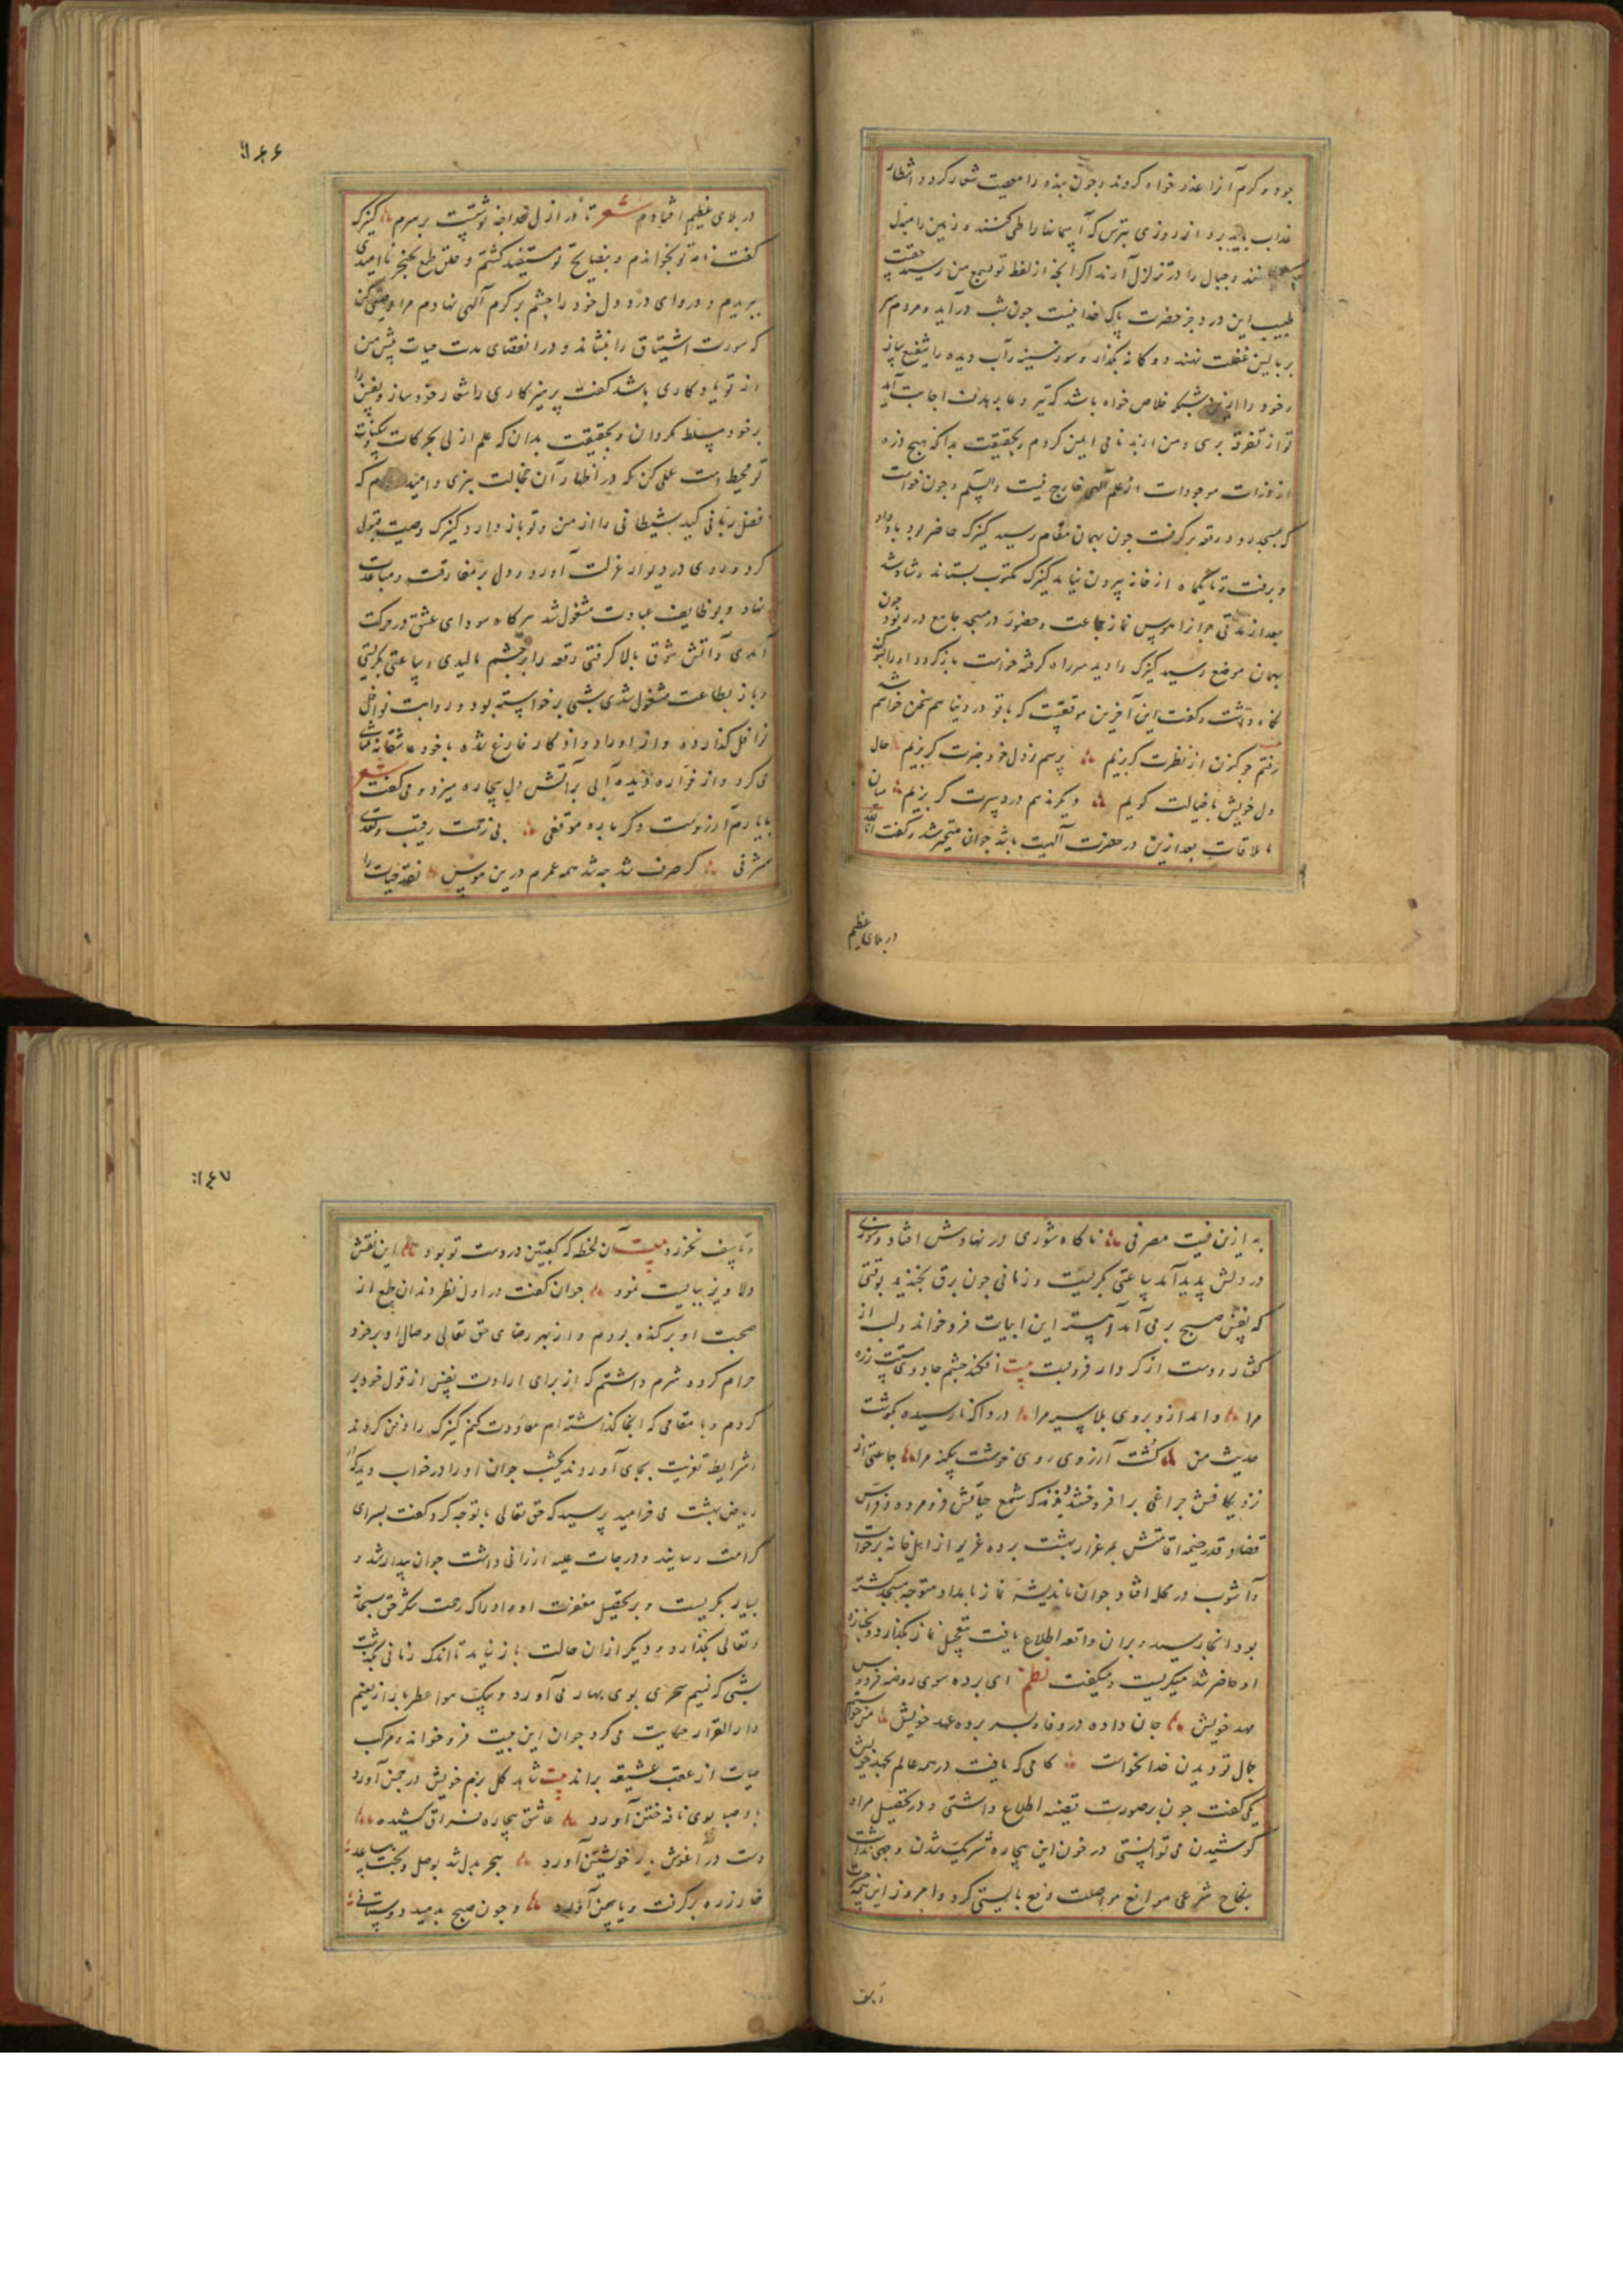 جود و کرم آنرا عذر خواه کردند و چون بنده را معصیت شعار کرد و انتظار
عذاب باید برد از روزی بترس که آسمانها را طی کنند و زمین را مبدل
و جبال را در تزلزل آرند اگر آنچه از لفظ تو بسمع من رسید حقست
طبیب این درد جز حضرت پاک خدا نیست چون شب درآید و مردم سر
بر بالین غفلت نهند دوگانه بگذار و سوز سینه و آب دیده را شفیع ساز
و خود را ازین شبکه خلاص خواه باشد که تیر دعا بر هدف اجابت آید
تو از تفرقه برسی و من از بدنامی ایمن کردم و بحقیقت بدانکه هیچ ذره
از ذرات موجودات از علم آلهی خارج نیست والسلم و چون خواست
که بمسجد رود رقعه بر گرفت چون بهمان مقام رسید کنیزک حاضر بود باو داد
و برفت و تا یکماه از خانه بیرون نیامد کنیزک مکتوب بستاند و شاد شد
بعد از مدتی جوانرا هوس نماز جماعت و حضور در مسجد جامع در ربود چون
بهمان موضع رسید کنیزک را دید سر راه گرفته خواست باز گردد او را
نگاه داشت و گفت این آخرین موقفیست که با تو در دنیا هم سخن خواهم شد
رفتم چو کنون از نظرت بگریزم پرسم ز دل خود چرات بگریزم حال
دل خویش با خیالت گویم دیگر ندهم دردسرت بگریزم میان
ما ملاقات بعد ازین در حضرت آلهیت باشد جوان متحیر شد و گفت انا لله
در بلای عظیم
۱۴۶
در بلای عظیم افتادم شعر تا در ازل قضا چه نوشتست بر سرم کنیزک
گفت نامه تو بخواندم و بنصایح تو مستفید گشتم و حلق طمع بخنجر ناامیدی
ببریدم و دروای درد دل خود را چشم بر کرم آلهی نهادم مرا وصیتی کن
که سورت اشتیاق را بنشاند و در انقضای مدت حیات پیش من
از تو یادگاری باشد گفت پرهیزکاری را شعار خود ساز و نفس را
بر خود مسلط مگردان و بحقیقت بدان که علم ازلی بحرکات و سکنات
تو محیط است عملی کن که در اظهار آن خجالت نبری و امید که
فضل ربانی کید شیطانی را از من و تو باز دارد کنیزک وصیت قبول
کرد و روی در دیوار عزلت آورد و دل بر مفارقت و مباعدت
نهاد و بوظایف عبادت مشغول شد هر گاه سودای عشق در حرکت
آمدی و آتش شوق بالا گرفتی رقعه را بر چشم مالیدی و ساعتی بگریستی
و باز بطاعت مشغول شدی شبی برخواسته بود و رواتب نوافل
نوافل گذارده و از اوراد و اذکار فارغ شده با خود عاشقانه
می کرد و از فواره دیده آبی بر آتش دل بیچاره میزد و می گفت شعر
با یارم آرزوست دگر باره موقفی بی زحمت رقیب و
مشرفی گر صرف شد چه شد همه عمرم درین هوس نقد حیات را
به ازین نیست مصرفی ناگاه شوری در نهادش افتاد و سوزی
در دلش پدید آمد ساعتی بگریست و زمانی چون برق بخندید بوقتی
که نفس صبح بر می آمد آهسته این ابیات فرو خواند و لب از
گفتار و دست از کردار فرو بست بیت افکند چشم جادوی مستت ز ره
مرا و انداز و بروی بلا سپر مرا دردا که نارسیده بگوشت
حدیث من گشت آرزوی روی خوشت مرا جماعتی از
نزدیکانش چراغی بر افروختند دیدند که شمع حیاتش فرو مرده و فراش
قضا و قدر خیمه اقامتش بمرغزار بهشت برده غریو از اهل خانه برخواست
و آشوب در محله افتاد جوان باندیشه نماز بامداد متوجه مسجد گشته
بود آنجا رسید و بران واقعه اطلاع یافت بتعجیل نماز بگذارد و بجنازه
او حاضر شد میگریست و میگفت نظم ای برده سوی روضه فردوس
مهد خویش جان داده در وفا و بسر برده عهد خویش من خواستم
جمال تو دیدن خدا نخواست کامی که یافت در همه عالم بجهد خویش
یکی گفت چون بر صورت قضیه اطلاع داشتی و در تحصیل مراد
کوشیدن می توانستی در خون این بیچاره شریک شدن وجهی نداشت
بنکاح شرعی موانع مواصلت رفع بایستی کرد و امروز این همه حسرت
و تاسف
۱۴۷
و تاسف نخورد بیت آن لحظه که کعبتین در دست تو بود این نقش
دلاویز ببایست نمود جوان گفت در اول نظر دندان طمع از
صحبت او بر کنده بودم و از بهر رضای حق تعالی وصال او بر خود
حرام کرده شرم داشتم که از برای ارادت نفس از قول خود بر
گردم و با مقامی که آنجا گذاشته ام معاودت کنم کنیزک را دفن کردند
و شرایط تعزیت بجای آوردند یکشب جوان او را در خواب دید که در
ریاض بهشت می خرامید پرسید که حق تعالی با تو چه کرد گفت بسرای
کرامت رسانید و درجات علیه ارزانی داشت جوان بیدار شد و
بسیار بگریست و بر تحصیل مغفرت او و ادراک رحمت شکر حق سبحانه
و تعالی بگذارد و دیگر ازان حالت باز نیامد تا اندک زمانی بگذشت
شبی که نسیم سحری بوی بهار می آورد و پیک هوا عطر بار از نعیم
دار القرار حکایت می کرد جوان این بیت فرو خواند و مرکب
حیات از عقب عشیقه براند بیت شاهد گل بزم خویش در چمن آورد
باد صبا بوی نافه ختن آورد عاشق بیچاره فراق کشیده
دست در آغوش یار خویشتن آورد هجر بدل شد بوصل و بخت مساعد
خار ز ره بر گرفت و یاسمن آورد و چون صبح بدمید دوستانی